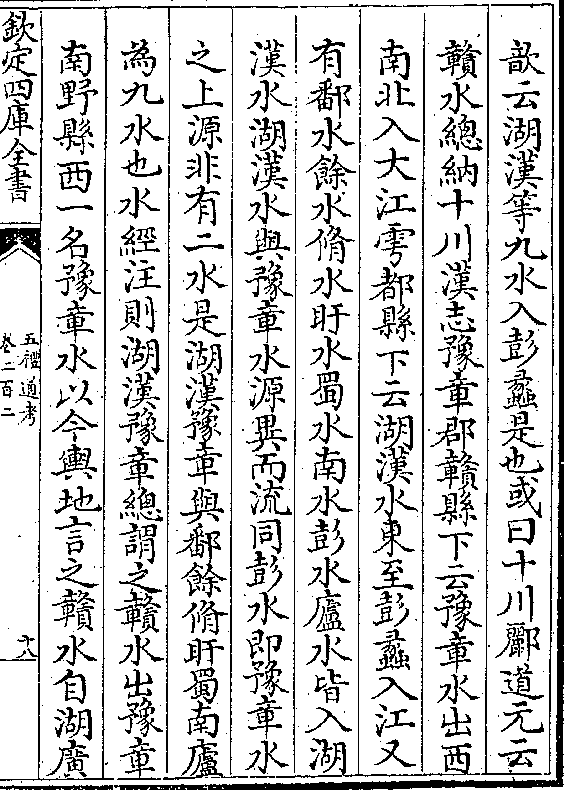 歆云湖漢等九水入彭蠡是也或曰十川酈道元云
贛水總納十川漢志豫章郡贛縣下云豫章水出西
南北入大江雩都縣下云湖漢水東至彭蠡入江又
有鄱水餘水脩水盱水蜀水南水彭水廬水皆入湖
漢水湖漢水與豫章水源異而流同彭水即豫章水
之上源非有二水是湖漢豫章與鄱餘脩盱蜀南廬
為九水也水經注則湖漢豫章總謂之贛水出豫章
南野縣西一名豫章水以今輿地言之贛水自湖廣
欽定四庫全書
五禮通考
卷二百二
十八